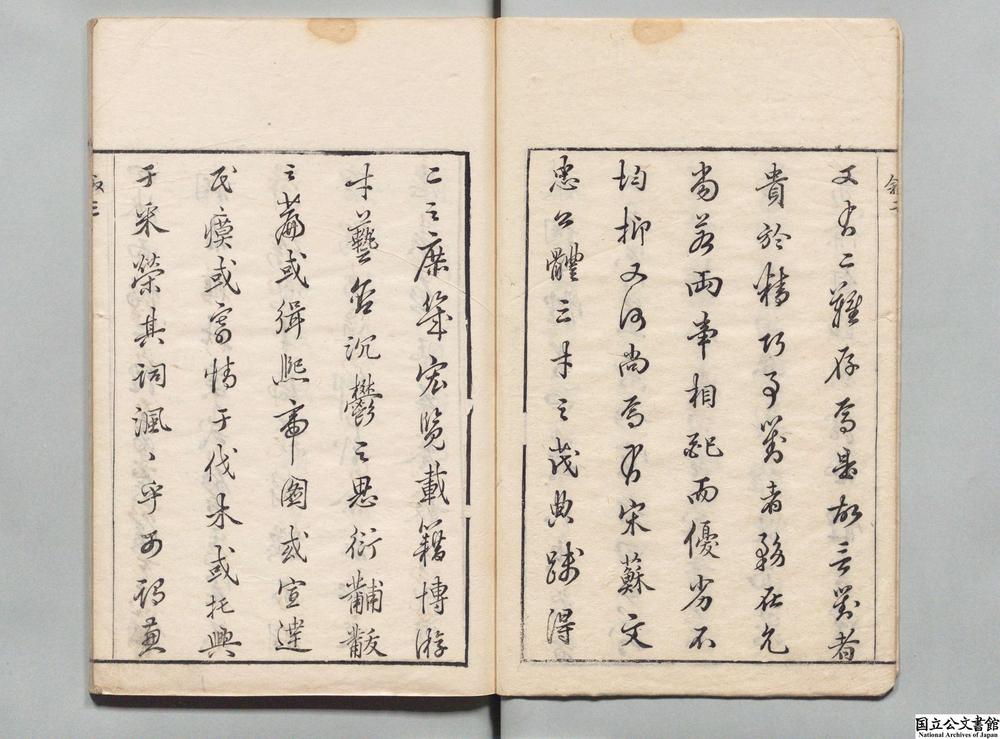 又有二難存焉是故言對者
貴於精巧事對者務在允
當若兩事相配而優劣不
均抑又何尚焉有宋蘇文
忠公體三才之茂典踐得
二之庶幾宏覽載籍博游
才藝含沉鬱之思衍黼黻
之篇或緝熙帝圖或宣達
民瘼或寄情于伐木或托興
于采榮其詞渢〻乎可謂兼
叙二
叙三
国立公文書館
National Archives of Japan